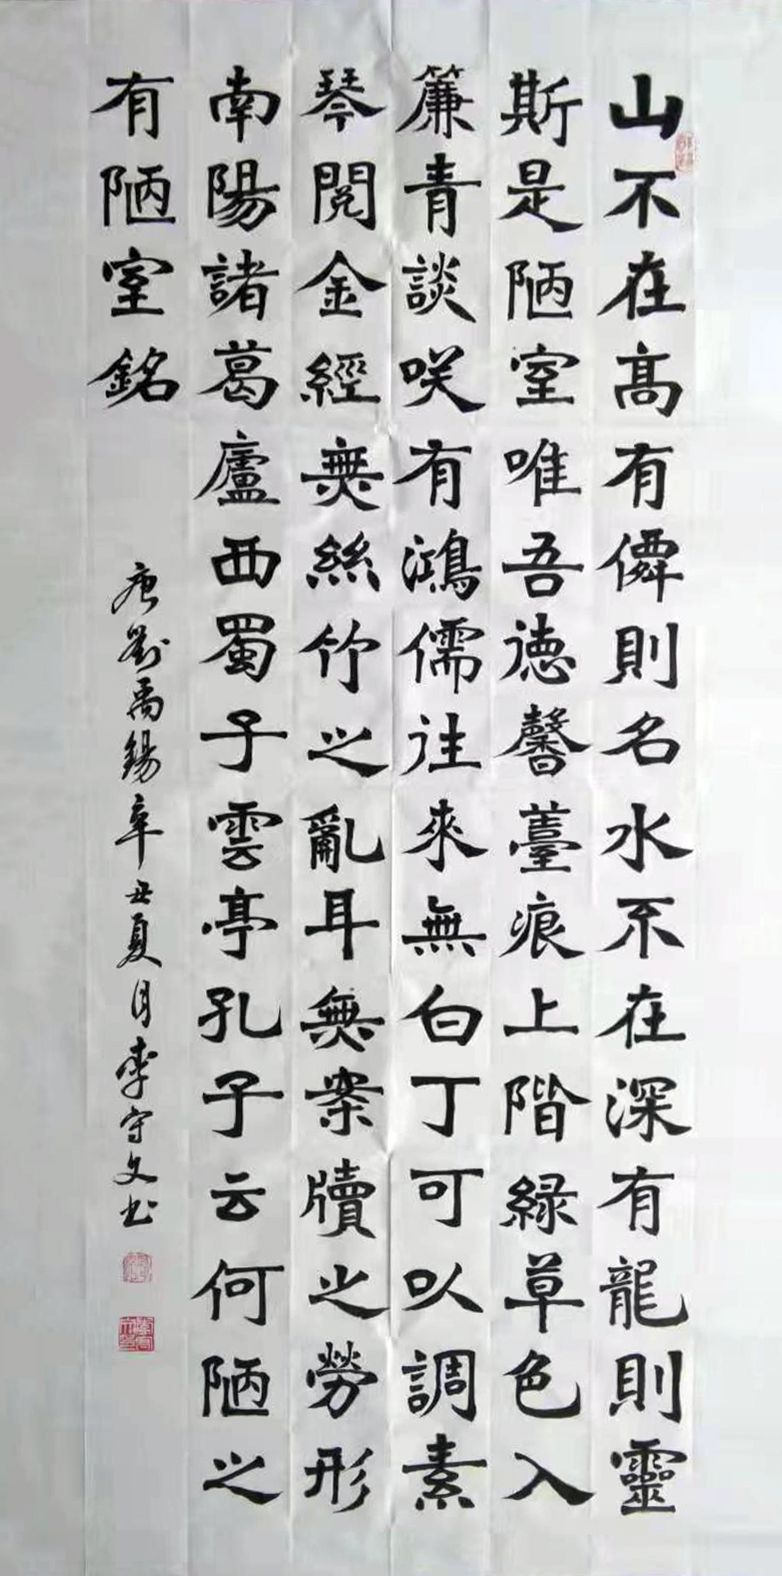 山不在高有僊則名水不在深有龍則靈
斯是陋室唯吾德馨薹痕上階緑草色入
簾青談咲有鴻儒往來無白丁可以調素
琴閲金經無絲竹之亂耳無案牘之勞形
南陽諸葛廬西蜀子雲亭孔子云何陋之
有陋室銘
唐劉禹錫辛丑夏月李守文书